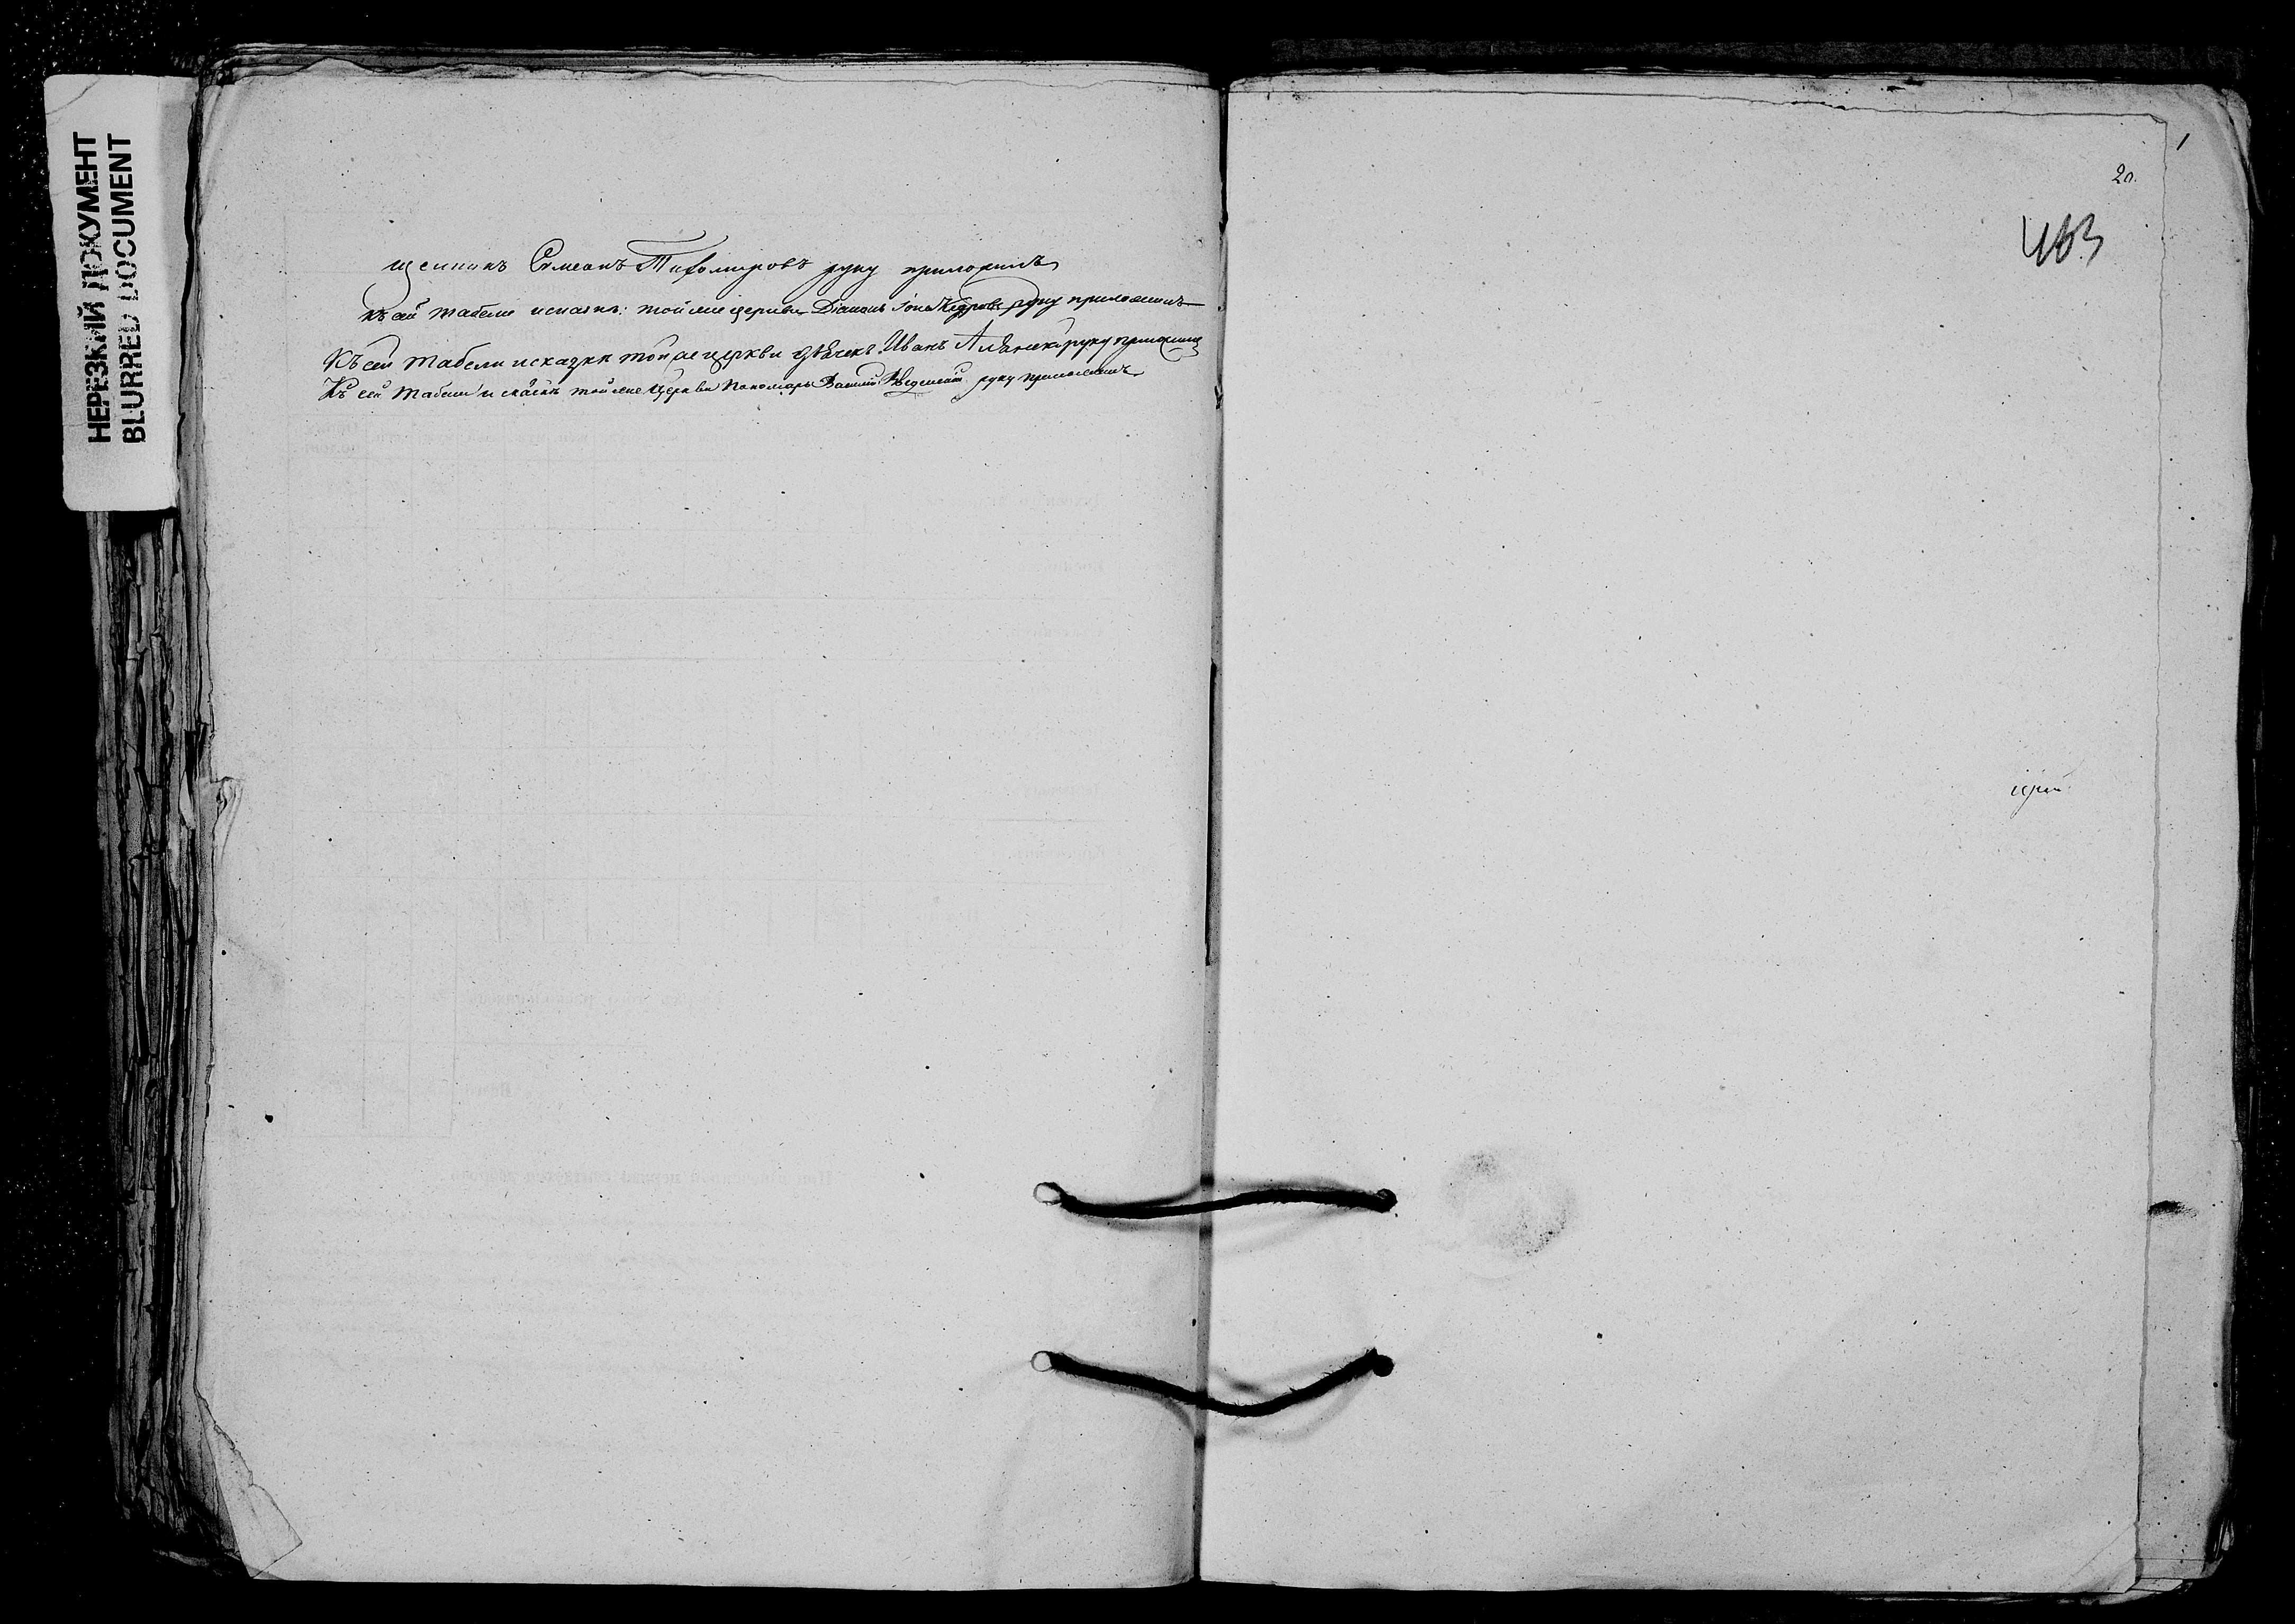 НЕРЕЗКИЙ ДОКУМЕНТ
BLURRED DOCUMENT
щенникъ Симеонъ Тихомировъ руку приложилъ
къ сей табели и сказкѣ: той же церкви Діаконъ Іона Кедровъ руку приложилъ
Къ сей табели и сказки той же церкви дьячекъ Иванъ руку приложилъ
Къ сей табели и сказкѣ той же Церкви Пономарь Василій Введенскій руку приложилъ
20.
463